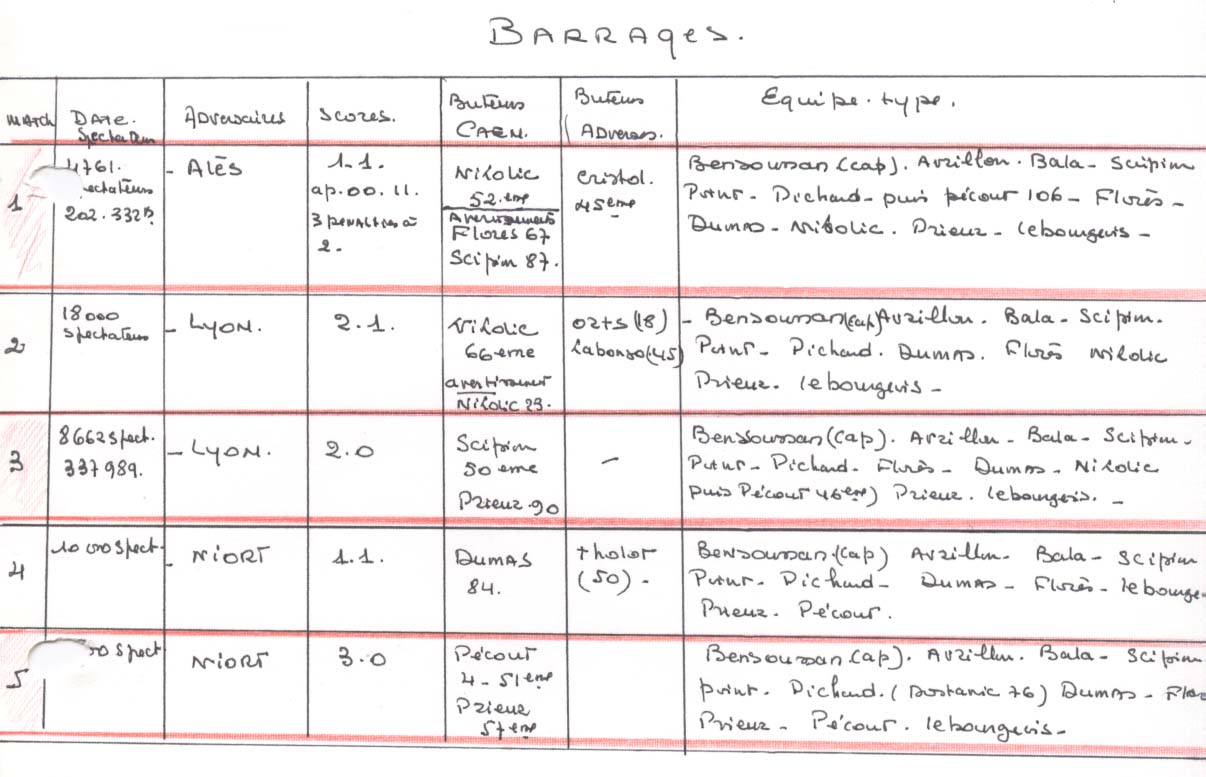 BARRAges.
MATCH
DATE.
Spectateurs
Adversaires
Scores.
Buteurs
CAEN.
Buteurs
Adverses.
Equipe.type.
1
4761.
202.332
- Alès
1-1.
ap.00.11.
3 penalties à
2.
Nikolic
52.eme
Avertissements
Flores 67
Scipion 87.
Cristol.
45eme
Bensoussan (cap). Avrillon. Bala - Scipion
Point - Dichard - puis Pécour 106 - Florès -
Dumas - Nikolic. Prieur - lebourgeois -
2
18000
spectateurs
- Lyon.
2.1.
Nikolic
66eme
avertissement
Nikolic 23.
Orts (18)
Labonso (45)
- Bensoussan (cap) Avrillon. Bala - Scipion.
Point - Dichard. Dumas. Florès Nikolic
Prieur. lebourgeois -
3
8662 spect.
337989.
- Lyon.
2.0
Scipion
50 eme
Prieur.90
-
Bensoussan (Cap). Avrillon - Bala - Scipion -
Point - Dichard - Florès - Dumas - Nikolic
puis Pécour 46eme) Prieur. lebourgeois. -
4
10 000 spect.
- NIORT
1.1.
DUMAS
84.
tholot
(50) -
Bensoussan (Cap) Avrillon - Bala - Scipion
Point - Dichard - Dumas - Florès - lebourge
Prieur - Pécour.
5
00 spect
NIORT
3.0
Pécour
4 - 51eme
Prieur
57eme
Bensoussan (ap). Avrillon. Bala - Scipion
point - Dichard. (Bostanic 76) Dumas - Flo
Prieur - Pécour. lebourgeois -